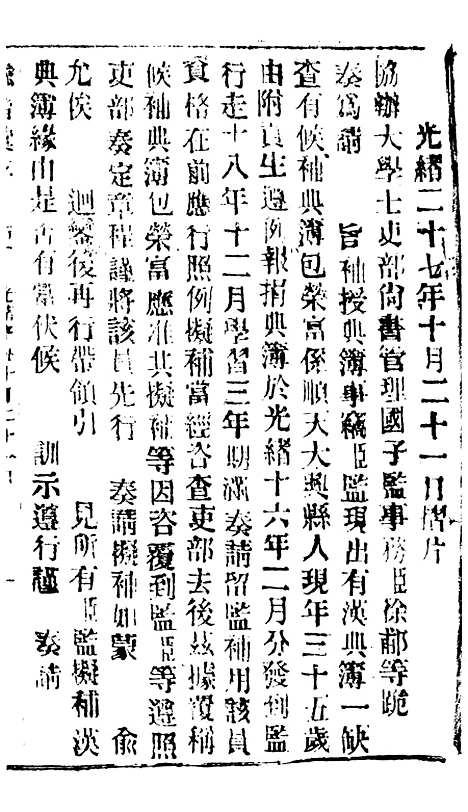 光緒二十七年十月二十一日摺片
協辦大學士吏部尚書管理國子監事務臣徐郙等跪
奏爲請　旨補授典簿事竊臣監現出有漢典簿一缺
查有候補典簿包榮富係順天大興縣人現年三十五歲
由附貢生遵例報捐典簿於光緒十六年二月分發到監
行走十八年十二月學習三年期滿奏請留監補用該員
資格在前應行照例擬補當經咨查吏部去後茲據覆稱
候補典簿包榮富應准其擬補等因咨覆到監臣等遵照
吏部奏定章程謹將該員先行　奏請擬補如蒙　俞
允俟　迴鑾後再行帶領引　見所有臣監擬補漢
典簿緣由是否有當伏候　訓示遵行謹　奏請